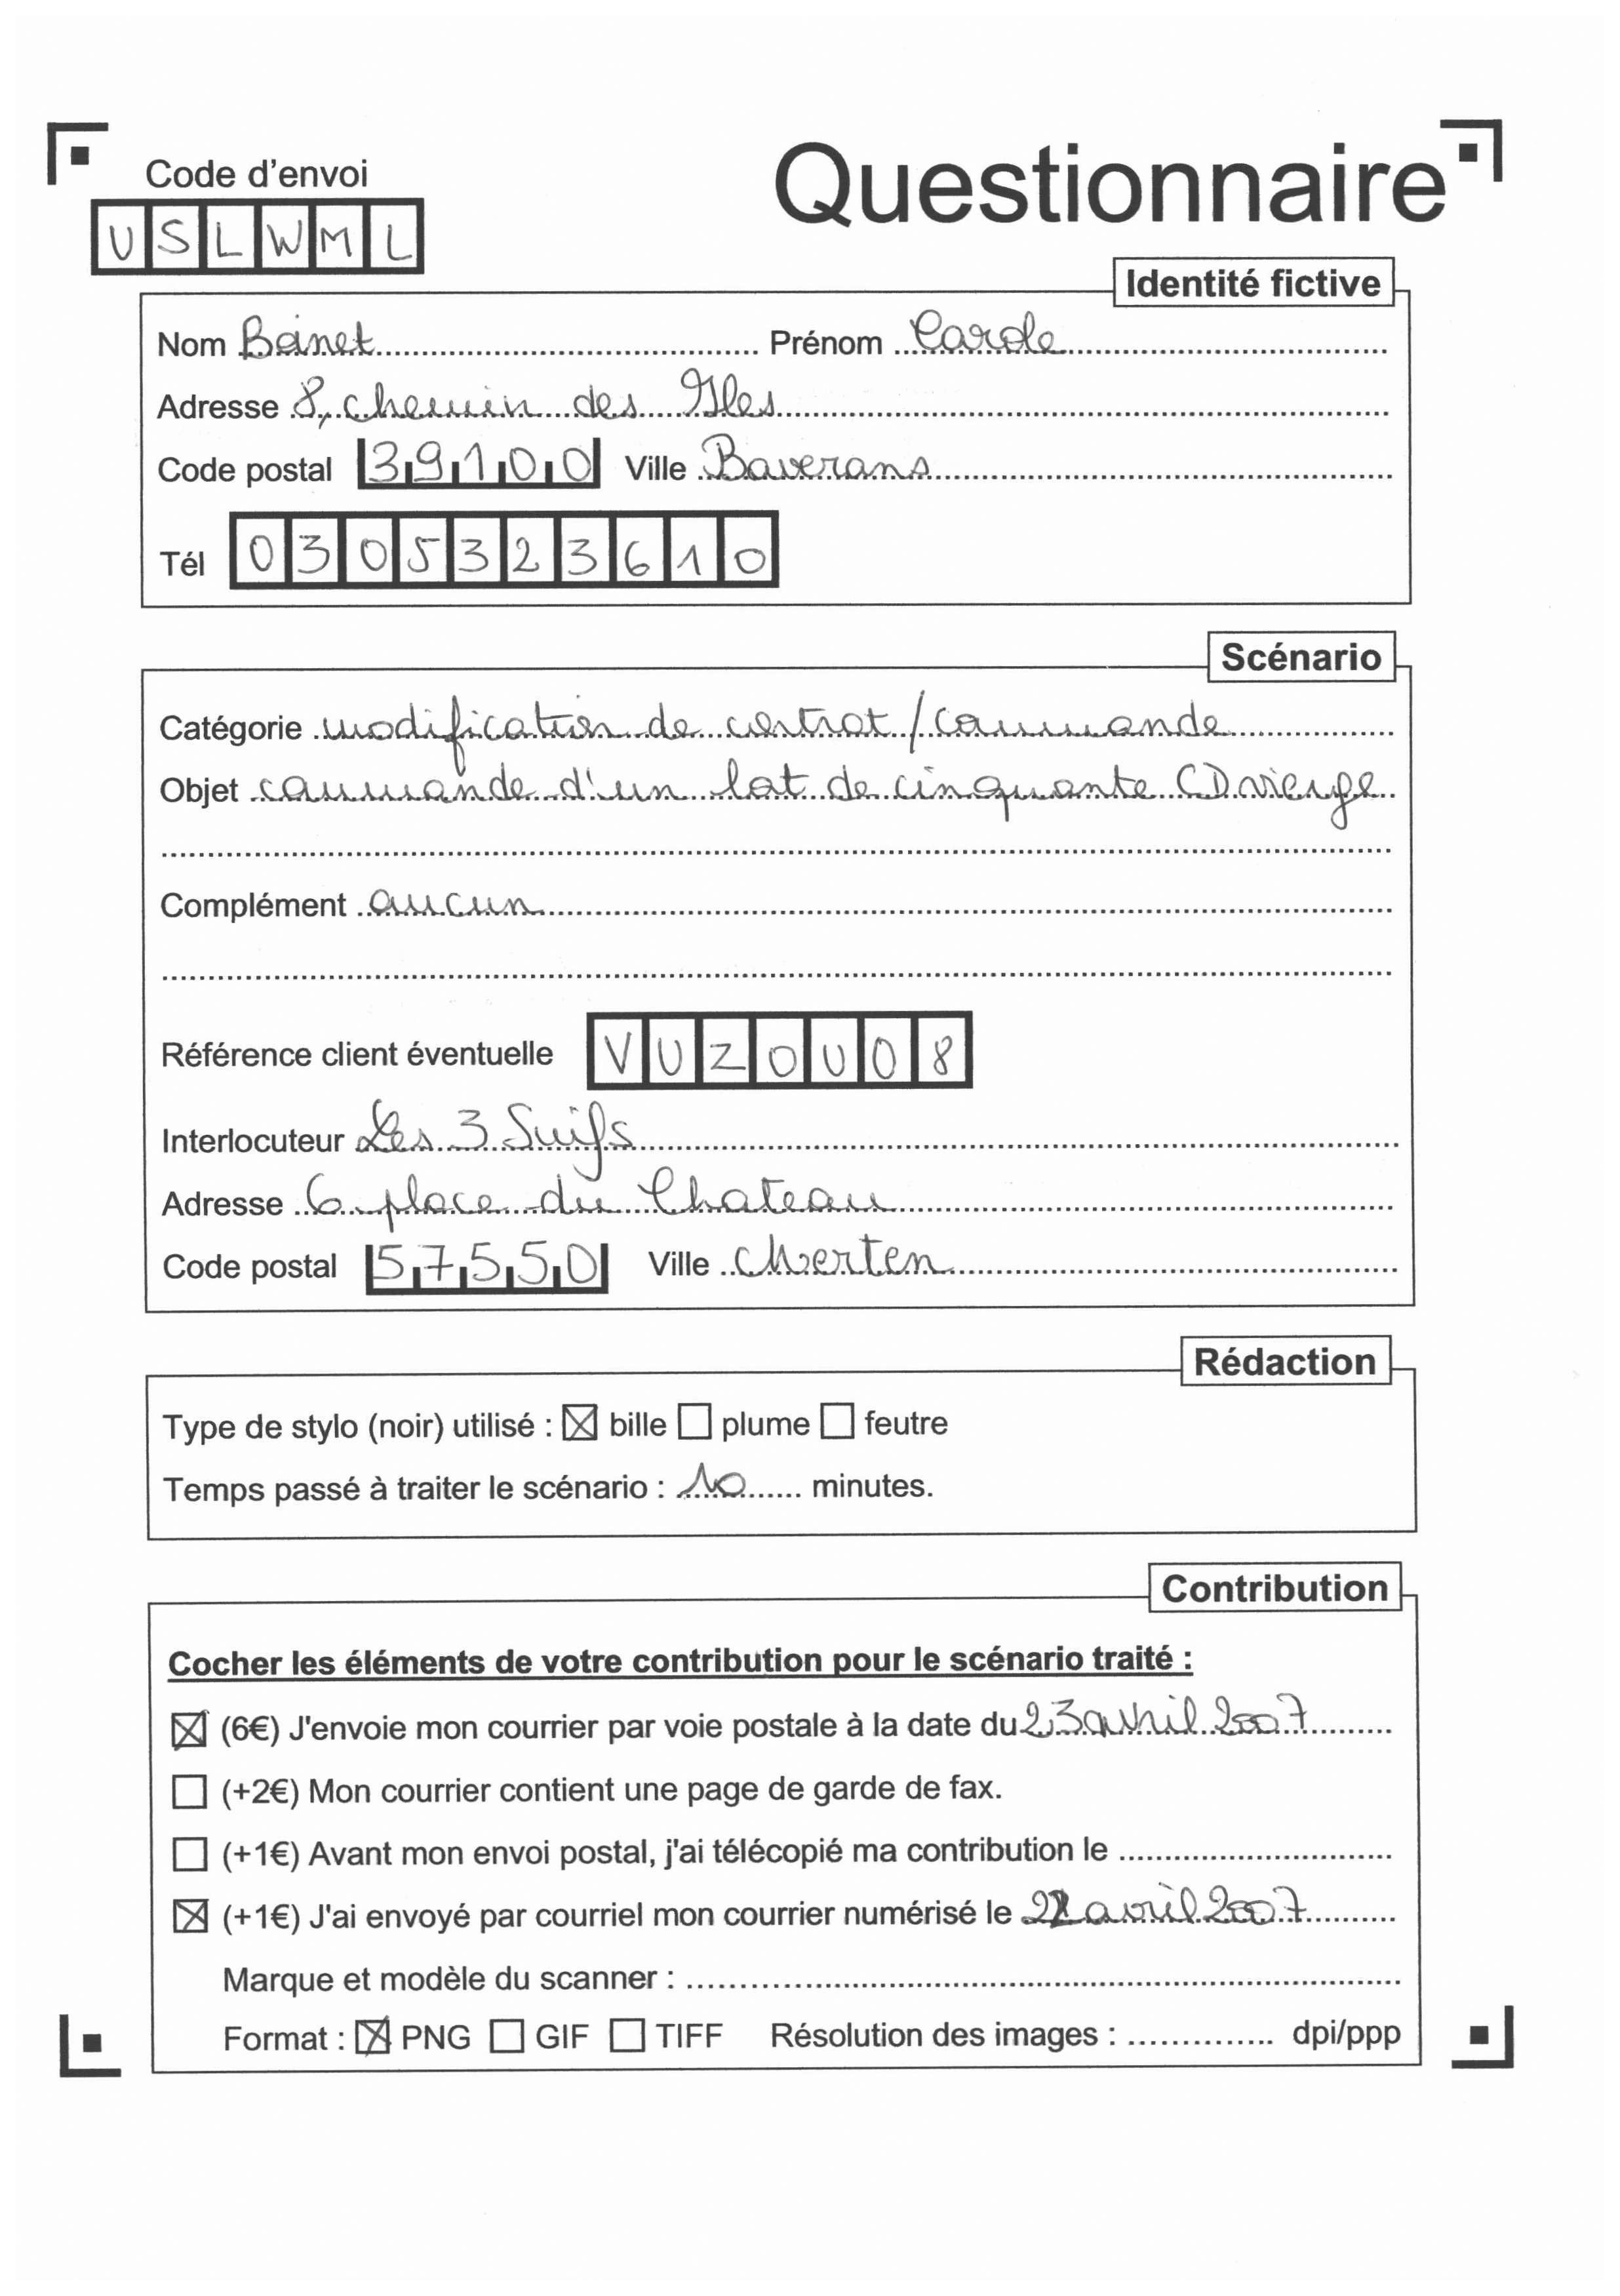 Questionnaire
Code d'envoi
USLWML
Identité fictive
Nom Boinet Prénom Carole
Adresse 8, chemin des Isles
Code postal 39100 Ville Baverans
Tél 0305323610
Scénario
Catégorie modification de contrat / commande
Objet commande d'un lot de cinquante CD vierge
Complément aucun
Référence client éventuelle VUZOU08
Interlocuteur Les 3 Suifs
Adresse 6 place du Chateau
Code postal 57550 Ville Merten
Rédaction
Type de stylo (noir) utilisé : ☒ bille ☐ plume ☐ feutre
Temps passé à traiter le scénario : 10 minutes.
Contribution
Cocher les éléments de votre contribution pour le scénario traité :
☒ (6€) J'envoie mon courrier par voie postale à la date du 23 avril 2007
☐ (+2€) Mon courrier contient une page de garde de fax.
☐ (+1€) Avant mon envoi postal, j'ai télécopié ma contribution le
☒ (+1€) J'ai envoyé par courriel mon courrier numérisé le 22 avril 2007
Marque et modèle du scanner :
Format : ☒ PNG ☐ GIF ☐ TIFF Résolution des images : dpi/ppp